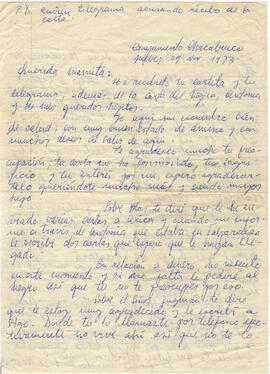 P.D. envien telegrama acusando recibo de la
carta.
Campamento Chacabuco
Jueves 29 Nov 1973
Querida mamita:
He recibido tu cartita y tu
telegrama, además de la carta del Negro,
y de sus queridos hijitos.
Yo aqui me encuentro bien
de salud, con muy buen estado de animo y con
muchos deseos de salir de aquí.
Te agradezco mucho tu pre-
ocupación, tu carta que me ha conmovido, tu sacri-
ficio y tu interés por mi, espero agradecer-
telo queriéndote mucho más y siendo mejor
hijo.
Sobre te diré que le he en-
viado varias cartas a Arica y cuando me in-
forme a traves de que estaba en Valparaiso
le escribi dos cartas que espero que le hayan lle-
gado.
En relación a dinero, no necesito
en este momento y si me falta le pediré al
Negro así que tu no te preocupes por eso.
Sobre el te diré
que le estoy muy agradecido y le escribiré
algo. Donde tu lo llamaste por teléfono efec-
tivamente no vive ahí así que no te lo